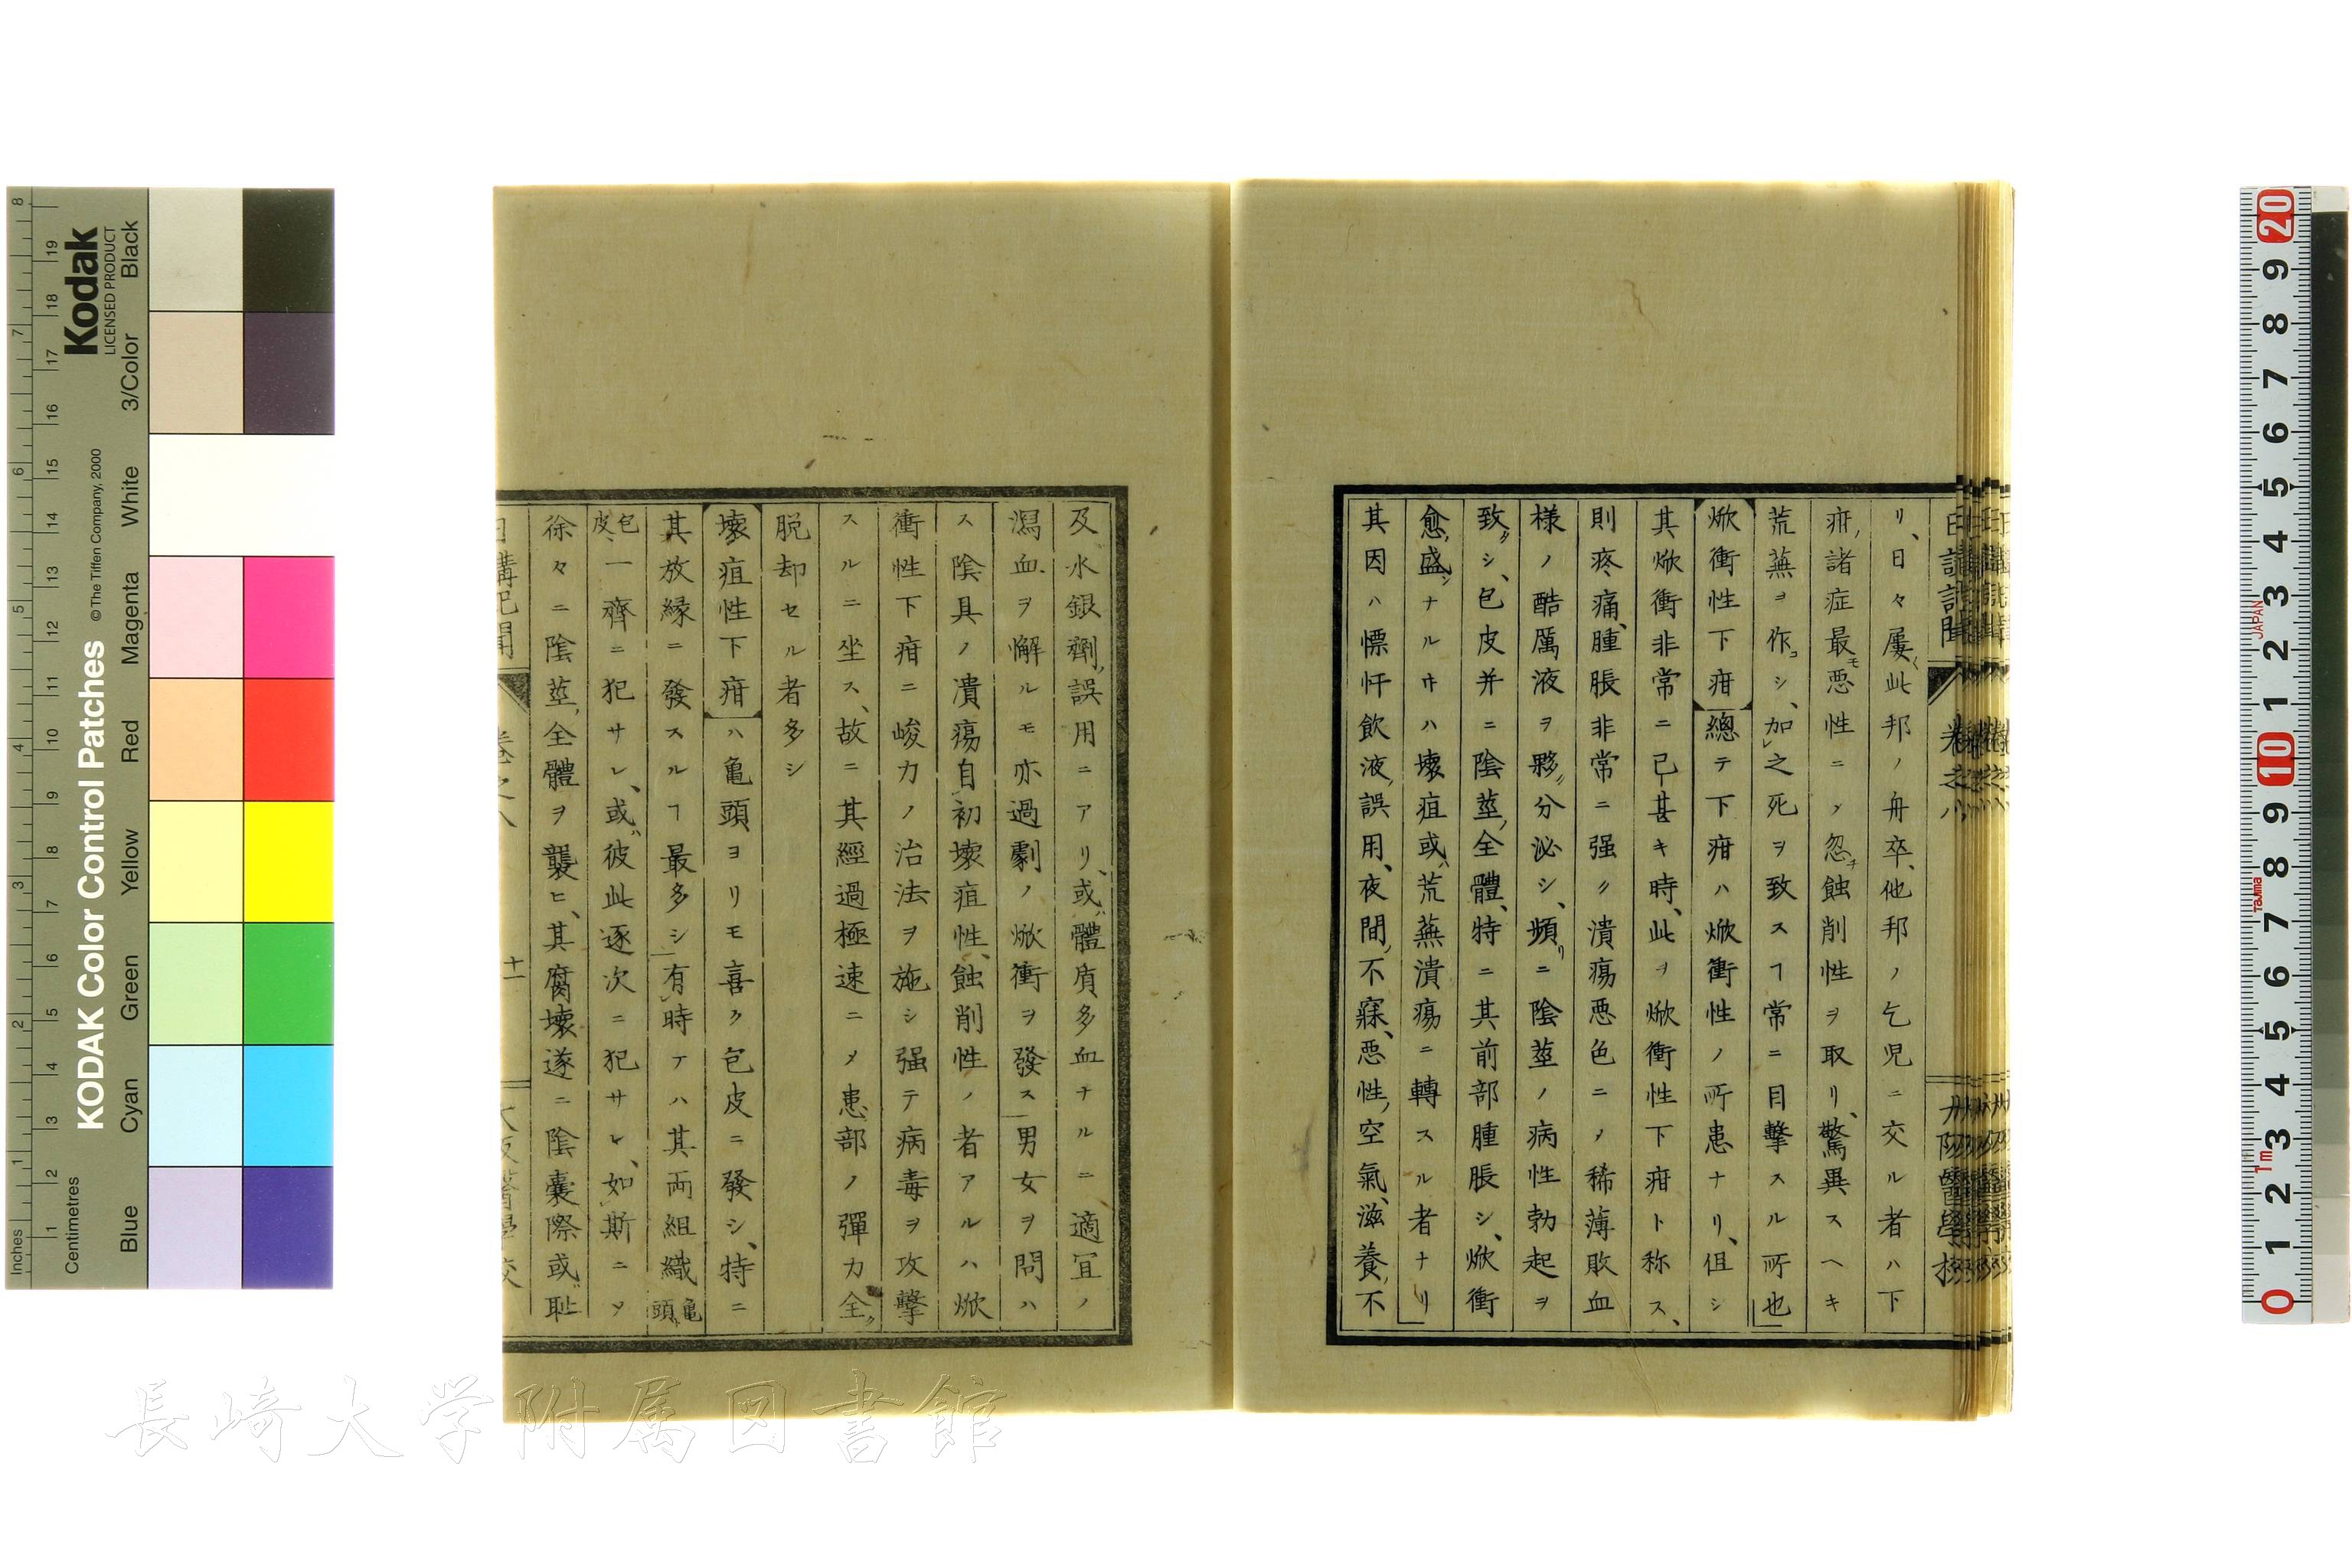 リ、日々屢〻此邦ノ舟卒、他邦ノ乞児ニ交ル者ハ下
疳、諸症最モ悪性ニメ忽チ蝕削性ヲ取リ、驚異スヘキ
荒蕪ヲ作シ、加之死ヲ致スヿ常ニ目撃スル所也
焮衝性下疳總テ下疳ハ焮衝性ノ所患ナリ、但シ
其焮衝非常ニ已甚キ時、此ヲ焮衝性下疳ト称ス、
則疼痛、腫脹非常ニ强ク潰瘍悪色ニメ稀薄敗血
樣ノ酷厲液ヲ夥分泌シ、頻リニ陰莖ノ病性勃起ヲ
致シ、包皮并ニ陰莖全體、特ニ其前部腫脹シ、焮衝
愈盛ナルヰハ壊疽或ハ荒蕪潰瘍ニ轉スル者ナリ
其因ハ慓忓飲液誤用、夜間不寐、悪性空氣、滋養不
日講記聞
卷之八
大阪醫學校
及水銀劑誤用ニアリ、或ハ體質多血ナルニ適宜ノ
瀉血ヲ懈ルモ亦過劇ノ焮衝ヲ發ス男女ヲ問ハ
ス陰具ノ潰瘍自初壊疽性、蝕削性ノ者アルハ焮
衝性下疳ニ峻力ノ治法ヲ施シ强テ病毒ヲ攻擊
スルニ坐ス、故ニ其經過極速ニメ患部ノ彈力全ク
脱却セル者多シ
壊疽性下疳ハ亀頭ヨリモ喜ク包皮ニ發シ、特ニ
其放縁ニ發スルヿ最多シ有時テハ其両組織亀頭
包皮一齊ニ犯サレ、或ハ彼此逐次ニ犯サレ、如斯ニメ
徐々ニ陰莖全體ヲ襲ヒ、其腐壊遂ニ陰囊際或ハ恥
日講記聞
卷之八
十一
大阪醫學校
KODAK Color Control Patches
© The Tiffen Company, 2000
Kodak
LICENSED PRODUCT
Inches
Centimetres
Blue
Cyan
Green
Yellow
Red
Magenta
White
3/Color
Black
JAPAN
Tajima
1m
長崎大学附属図書館